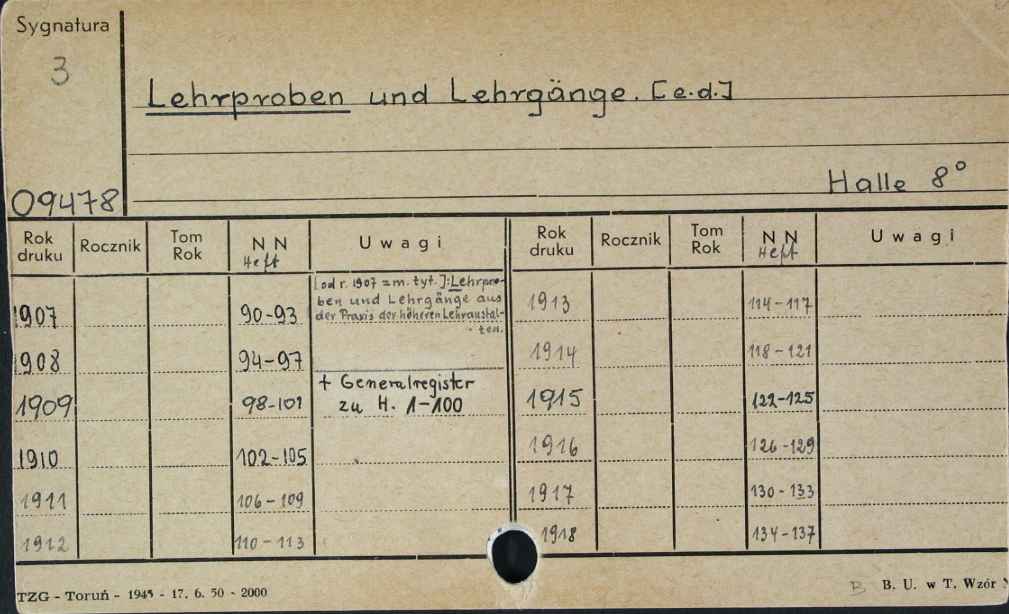 Sygnatura
3
Lehrproben und Lehrgänge. [e.d.]
Halle 8°
09478
Rok druku Rocznik Tom Rok NN Heft Uwagi Rok druku Rocznik Tom Rok NN Heft Uwagi
[od r. 1907 = m. tyt.]: Lehrpro-
ben und Lehrgänge aus
der Praxis der höheren Lehranstal-
ten.
1907 90-93 1913 114-117
1908 94-97 1914 118-121
+ Generalregister
zu H. 1-100
1909 98-101 1915 122-125
1910 102-105 1916 126-129
1911 106-109 1917 130-133
1912 110-113 1918 134-137
TZG - Toruń - 1945 - 17. 6. 50 - 2000
B B. U. w T. Wzór